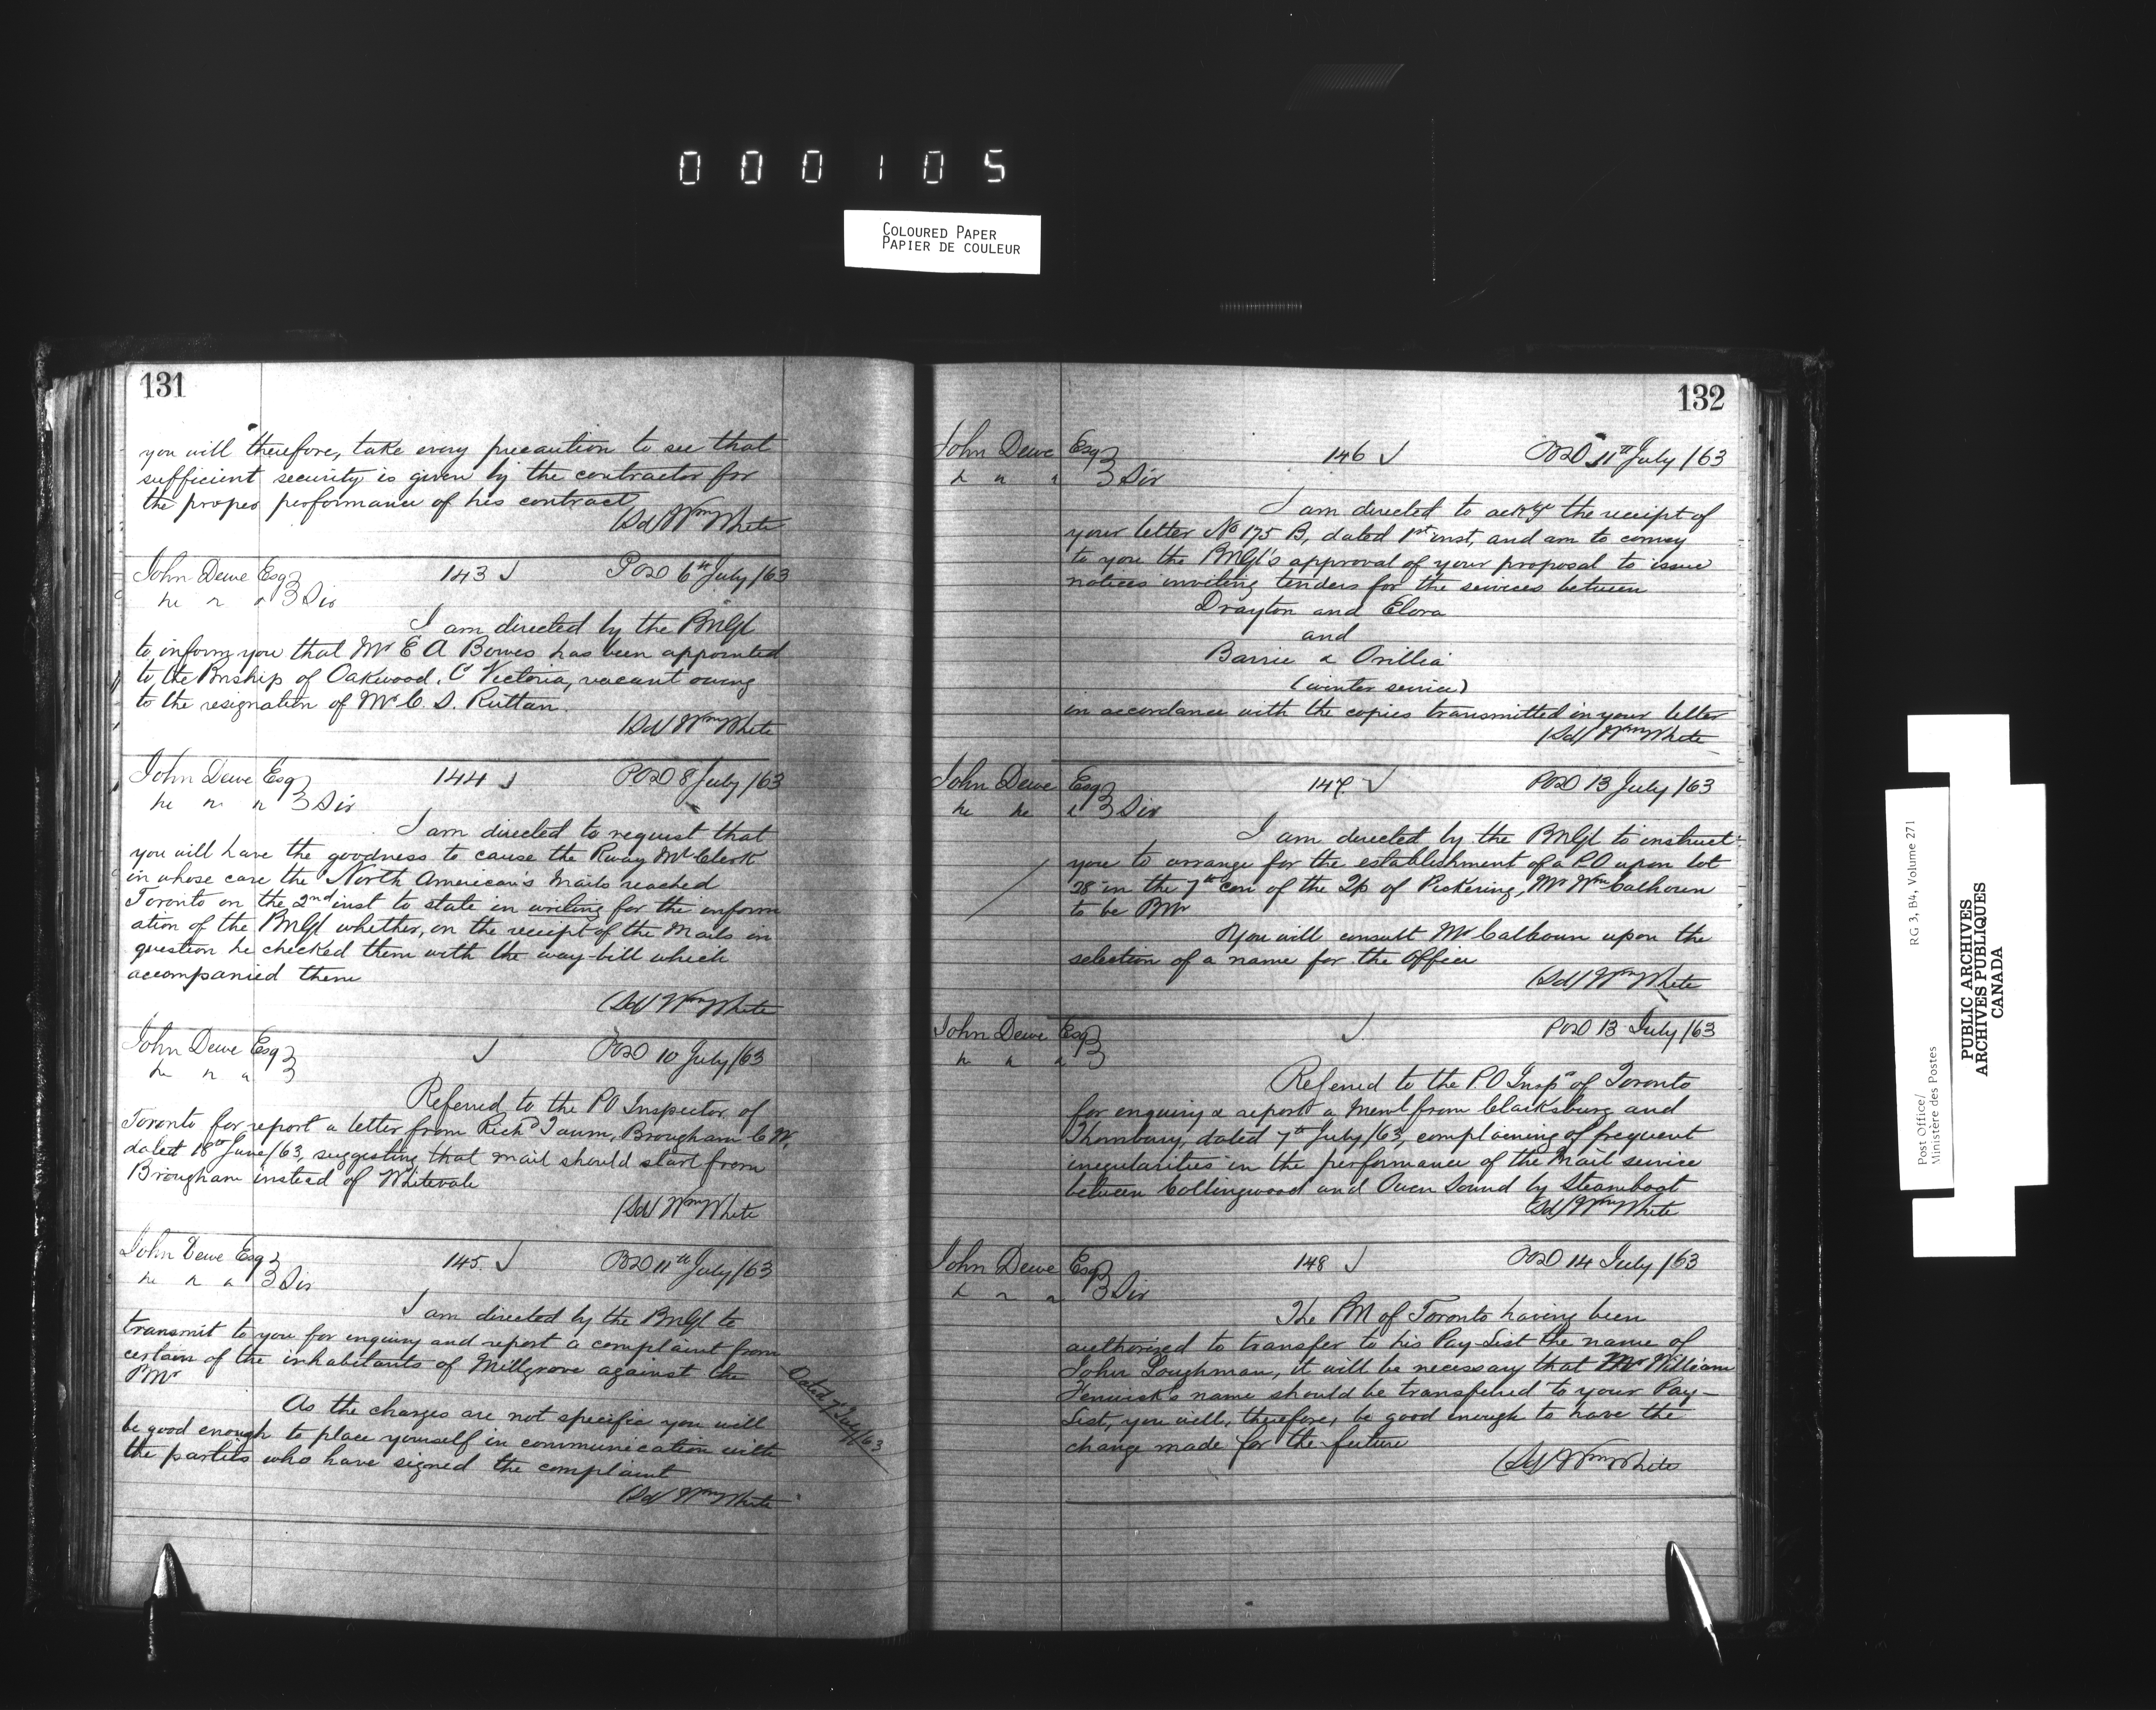 000105
COLOURED PAPER
PAPIER DE COULEUR
131
you will therefore, take every precaution to see that
sufficient security is given by the contractor for
the proper performance of his contract
(Sd) Wm White
John Dewe Esq
143 POD 6th July /63
3 Div
I am directed by the PMGl
to inform you that Mr E A Bowes has been appointed
to the Pmship of Oakwood, C Victoria, vacant owing
to the resignation of Mr C. S. Ruttan.
(Sd) Wm White
John Dewe Esq
144 POD 8 July /63
3 Div
I am directed to request that
you will have the goodness to cause the Rway Ml Clerk
in whose care the North American's Mails reached
Toronto on the 2nd inst to state in writing for the inform
ation of the PMGl whether, on the receipt of the Mails in
question he checked them with the way-bill which
accompanied them
(Sd) Wm White
John Dewe Esq
POD 10 July /63
Referred to the PO Inspector of
Toronto for report a letter from Richd , Brougham C W,
dated 18th June /63, suggesting that mail should start from
Brougham instead of Whitevale
(Sd) Wm White
John Dewe Esq
145. POD 11th July /63
3 Div
I am directed by the PMGl to
transmit to you for enquiry and report a complaint from
certain of the inhabitants of Millgrove against the
PMr
Dated 7 July /63
As the charges are not specific you will
be good enough to place yourself in communication with
the parties who have signed the complaint
(Sd) Wm White
132
John Dewe Esq
146 POD 11th July /63
3 Div
I am directed to ackge the receipt of
your letter No 175 B, dated 1st inst, and am to convey
to you the PMGl's approval of your proposal to issue
notices inviting tenders for the services between
Drayton and Elora
and
Barrie & Orillia
(winter service)
in accordance with the copies transmitted in your letter
(Sd) Wm White
John Dewe Esq
147 POD 13 July /63
3 Div
I am directed by the PMGl to instruct
you to arrange for the establishment of a PO upon lot
28 in the 7th con of the Tp of Pickering, Mr Wm Calhoun
to be PMr
You will consult Mr Calhoun upon the
selection of a name for the Office
(Sd) Wm White
John Dewe Esq
POD 13 July /63
Referred to the PO Inspr of Toronto
for enquiry & report a Meml from Clarksburg and
Thornbury, dated 7th July /63, complaining of frequent
irregularities in the performance of the Mail service
between Collingwood and Owen Sound by Steamboat
(Sd) Wm White
John Dewe Esq
148 POD 14 July /63
3 Div
The PM of Toronto having been
authorised to transfer to his Pay-List the name of
John Loughman, it will be necessary that Mr William
Fenwick's name should be transferred to your Pay-
List, you will, therefore, be good enough to have the
change made for the future
(Sd) Wm White
Post Office/
Ministère des Postes
RG 3, B4, Volume 271
PUBLIC ARCHIVES
ARCHIVES PUBLIQUES
CANADA